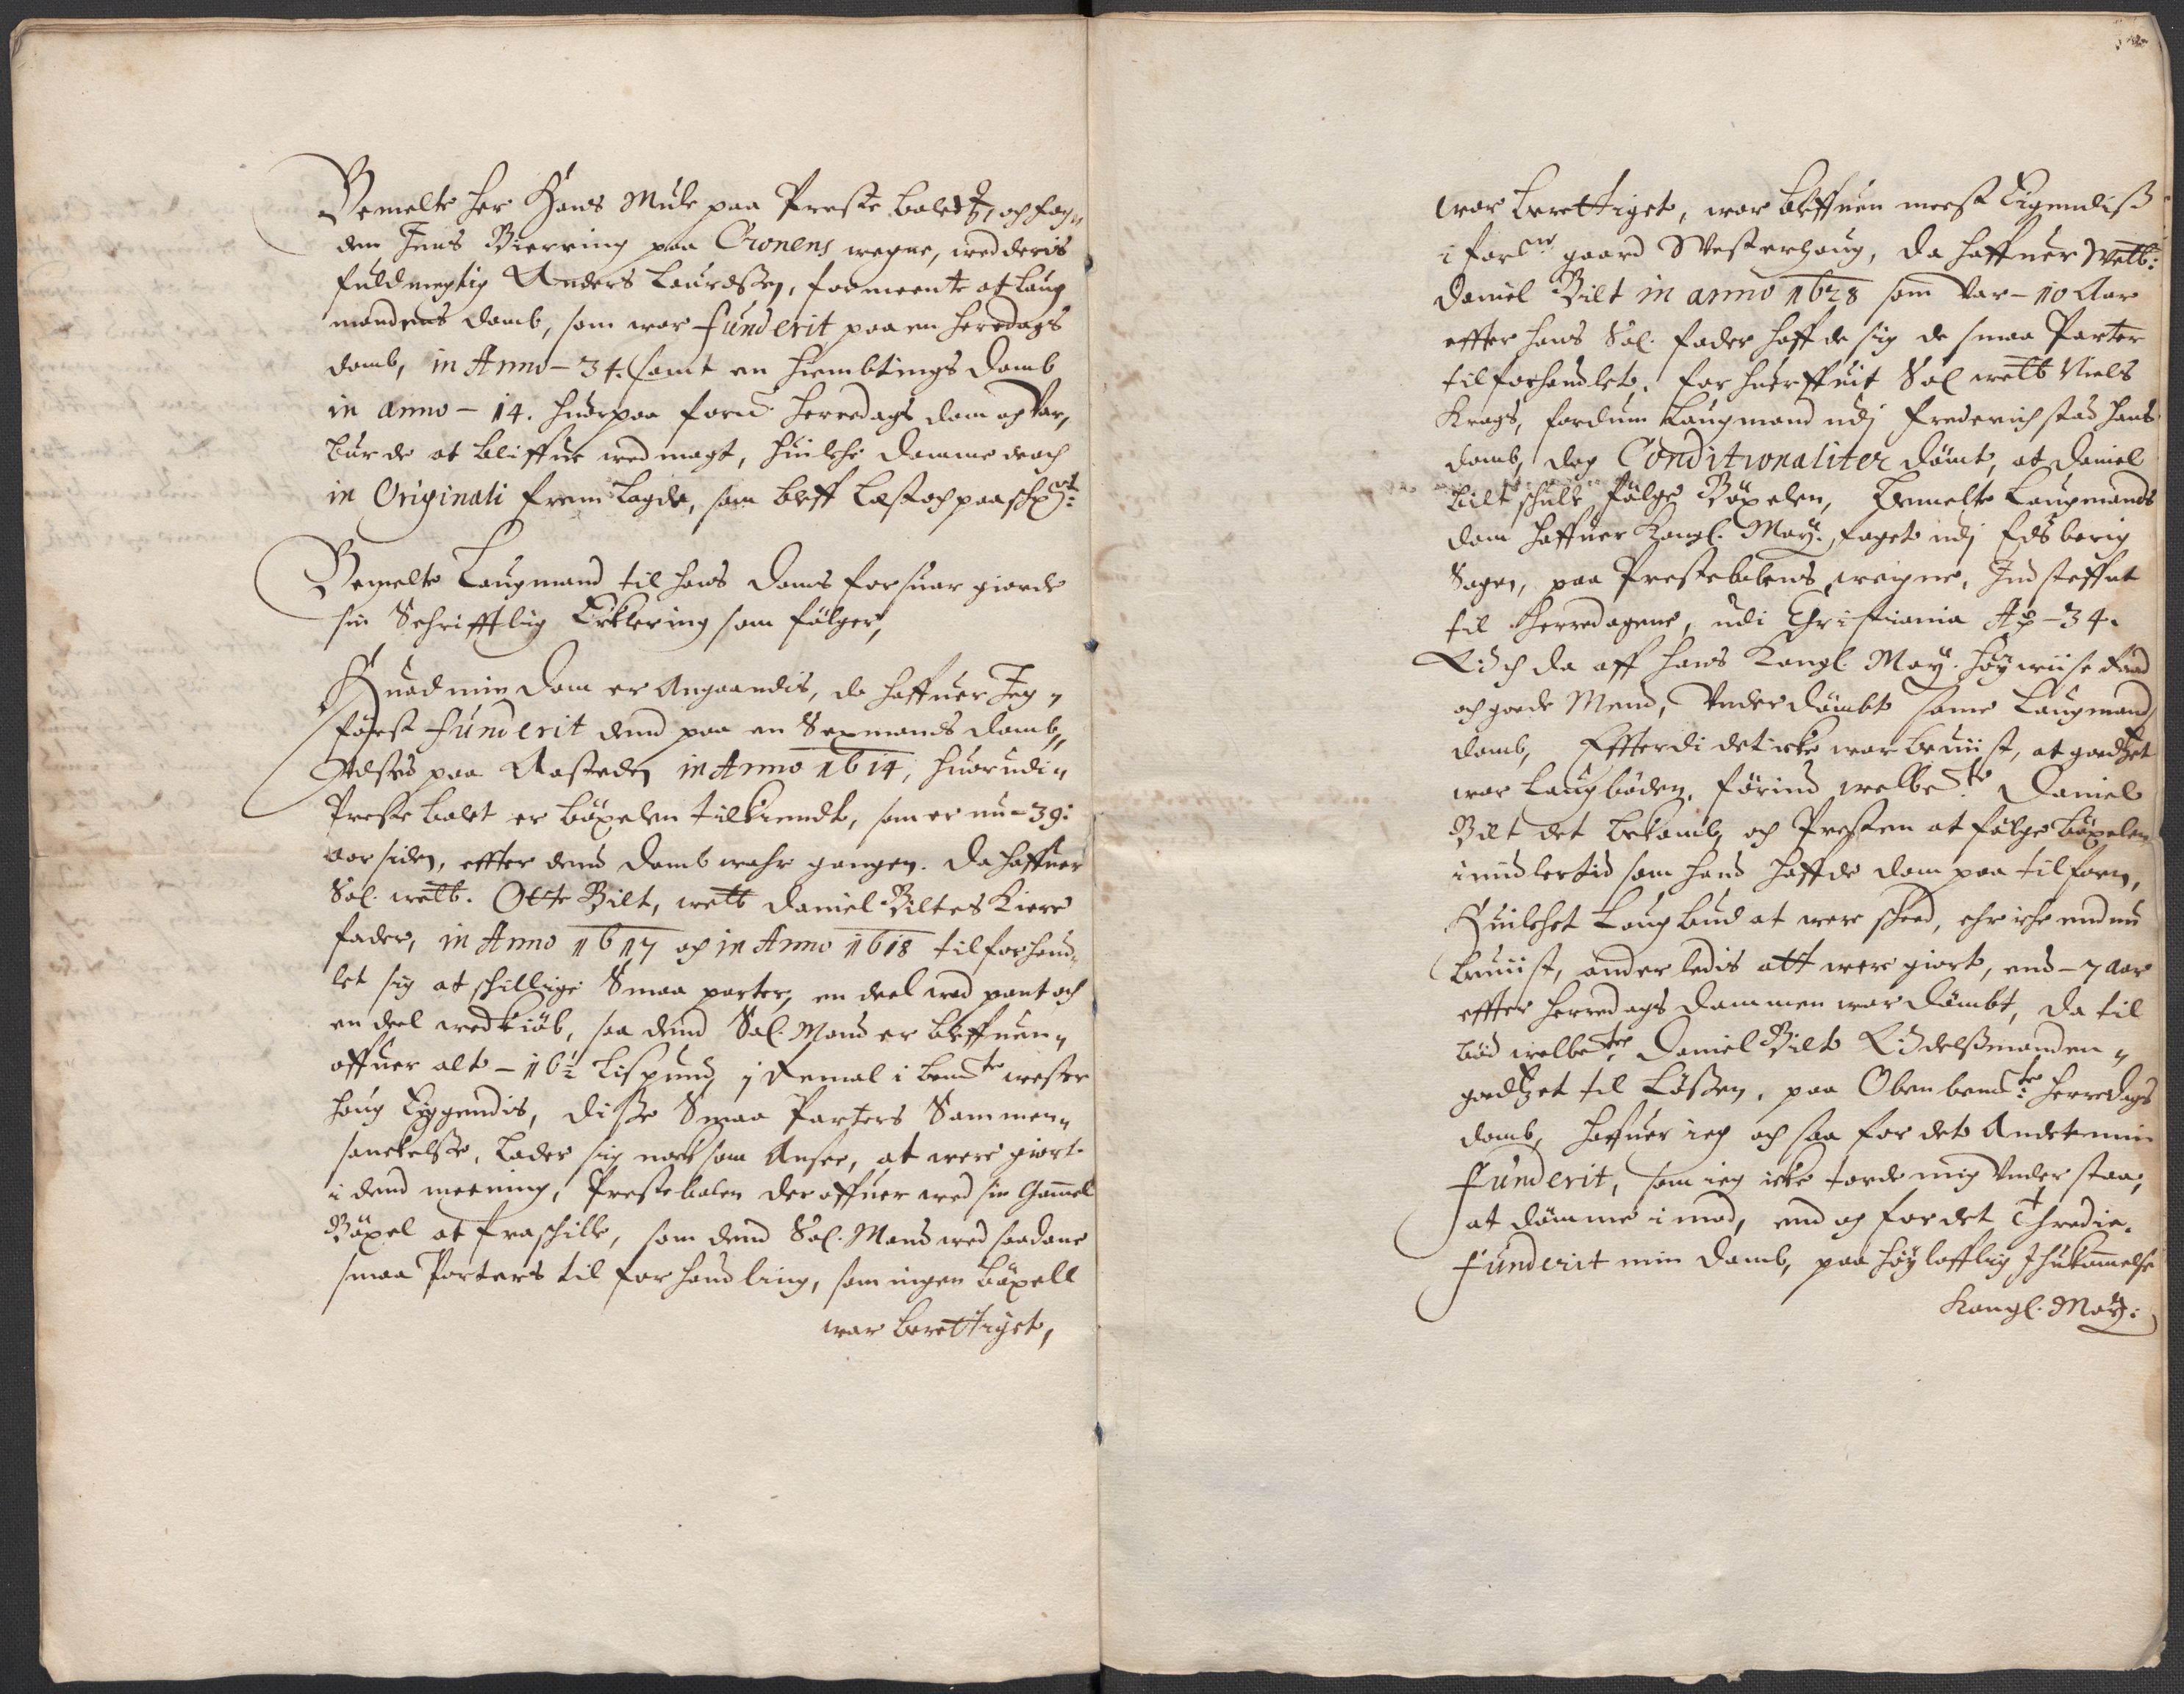 Bemelte her Hans Mule paa Preste boletz, och fog„
den Jens Bierring paa Cronens wegne, wed deris
fuldmegtig Anders Laurdssen, formeente at Laug
mandens domb, som war funderit paa en herredags
domb, in Anno - 34. samt en hiembtings domb
in anno - 14. huorpaa ford: herredags dom og war,
burde at bliffue wed magt, huilche domme deoch
in Originali frem lagde, som bleff Læst och paaschr:
Bemelte Laugmand til hans doms forsuar giorde
sin Schrifftlig Erklering som fölger,
Huad min dom er Angaandis, da haffuer Jeg„
först funderit dend paa en Sexmands domb,
Adsted paa Aasteden in Anno 1614, huorudi„
Preste bolet er böxelen tilkiendt, som er nu - 39:
aar siden, effter dend domb wahr gangen. Da haffuer
Sal. welb. Otte Bilt, welb Daniel Biltes Kiere
fader, in Anno 1617 og in Anno 1618 tilforhand„
let sig at schillige Smaa parter, en deel wed pant och
en deel wed kiöb, saa dend Sal. Mand er bleffuen„
offuer alt - 16½ Lispund, j Remal i bemte wester
houg Eyggendis, disse Smaa Parters Sammen„
sanckelsse, Lader sig nock som Ansee, at were giort
i dend meening, Prestebolen der offuer wed sin Gammel
Böxel at fraschille, som dend Sal. Mand wed saadane
smaa Parters til forhandling, som ingen böxell
war berettiget,
war berettiget, war bleffuen meest Eigendiss
i forne gaard Westerhoug, da haffuer Welb:
Daniel Bilt in anno 1628 som var - 10 Aar
effter hans Sal. fader haffde sig de smaa Parter
tilforhandlet. for huerffuit Sal welb Niels
Krags, fordum Laugmand udj Frederichstad hans
domb, dog Conditionaliter dömt, at Daniel
Bilt schulle fölge Böxelen, bemelte Laugmands
dom haffuer Kongl. May. foget udj Edsberig
Sagen, paa Prestebolens weigne, Ind steffnet
til herredagene, udi Christiania Ao - 34.
Er och da aff hans Kongl. May. höywiise Raad
och goede Mend, Vnderdömbt same Laugmands
domb, Effterdi det icke war beuiist, at goedtzet
war Laugböden, förind welbe:te Daniel
Bilt det bekomb, og Presten at fölge böxelen
imidlertid som hand haffde dom paa tilforn,
Huilchet Laugbud at were scheed, ehr iche end nu
beuiist, anderledis att were giort, end - 7 Aar
effter herredags dommen war dömbt, da til
böd welbe:te Daniel Bilt Edelssmanden„
goedtzet til Lössen, paa Oben bemte: herredags
domb, haffuer ieg och saa for det Andet min
funderit, som ieg icke torde mig vnder staa,
at dömme imod, end og for det Thredie.
funderit min domb, paa höylofflig Ihukommelse
Kongl. May: